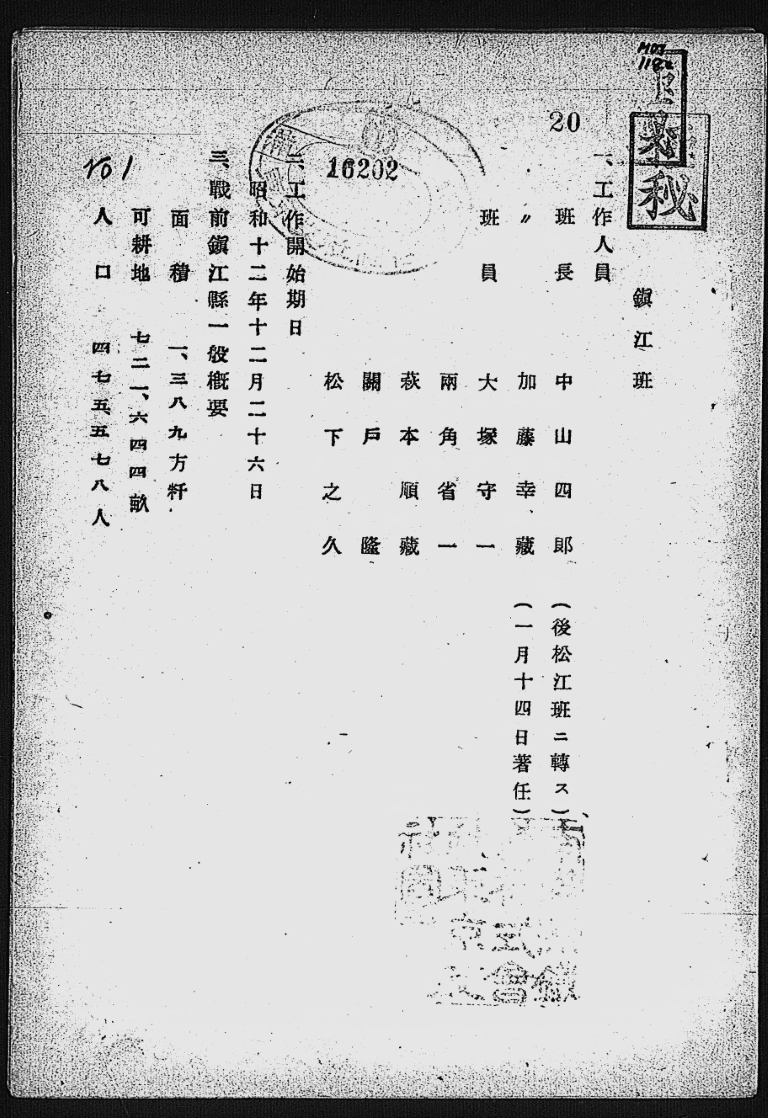 MOJ
20
秘
16202
鎭江班
一、工作人員
班長 中山四郎 (後松江班ニ轉ス)
〃 加藤幸藏 (一月十四日著任)
班員 大塚守一
兩角省一
萩本順藏
關戸隆
松下之久
二、工作開始期日
昭和十二年十二月二十六日
三、戰前鎭江縣一般槪要
面積 一、三八九方粁
可耕地 七二一、六四四畝
人口 四七五五七八人
No 1